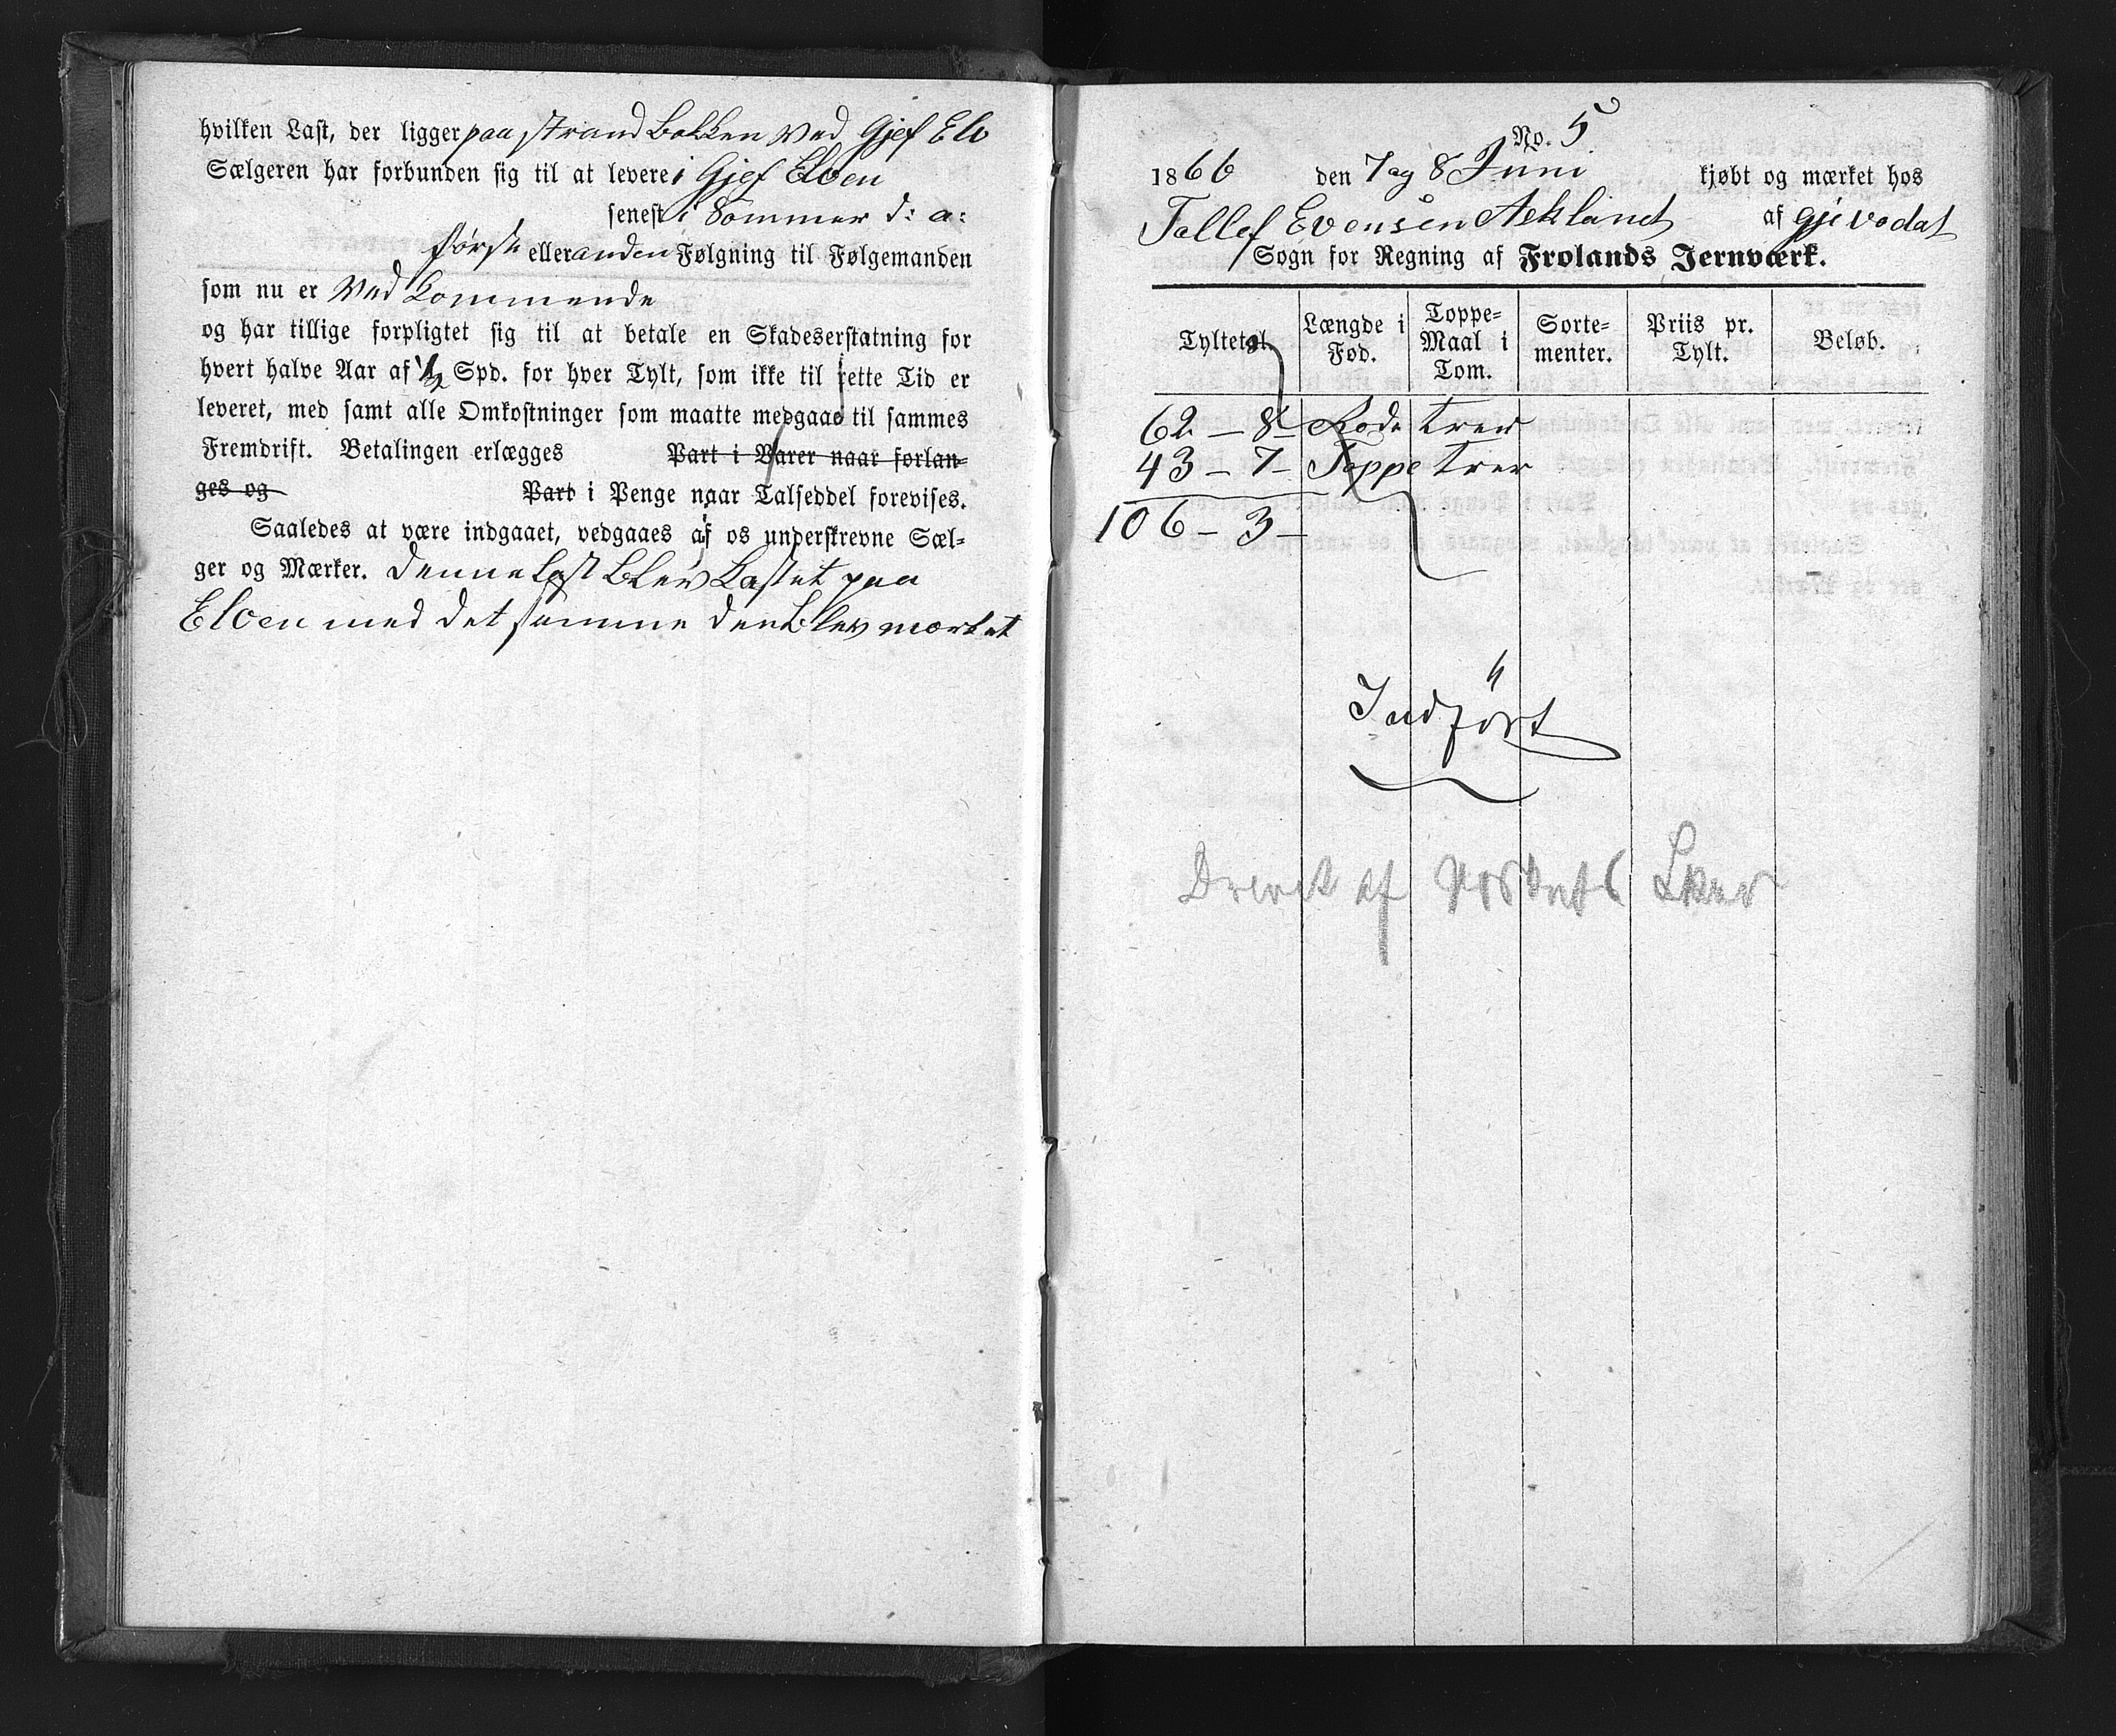 hvilken Last, der ligger paa strand bakken ved Gjef Elv
Sælgeren har forbunden sig til at levere i Gjef Elven
senest i Sommer d: a:
første eller anden Følgning til Følgemanden
som nu er Ved kommende
og har tillige forpligtet sig til at betale en Skadeserstatning for
hvert halve Aar af 1/2 Spd. for hver Tylt, som ikke til rette Tid er
leveret, med samt alle Omkostninger som maatte medgaae til sammes
Fremdrift. Betalingen erlægges Part i Varer naar forlan-
ges og Part i Penge naar Talseddel forevises.
Saaledes at være indgaaet, vedgaaes af os underskrevne Sæl-
ger og Mærker. Denne last blev kastet paa
Elven med det samme den blev mærket
No. 5
1866 den 7 og 8 Juni kjøbt og mærket hos
Tellef Evensen Askland af Gjevedal
Sogn for Regning af Frolands Jernværk.
Tyltetal. Længde i Fod. Toppe-Maal i Tom. Sorte-menter. Priis pr. Tylt. Beløb.
62 – 8 – Rode trer
43 – 7 – Toppe trer
106 – 3 –
Indført
Drevet af